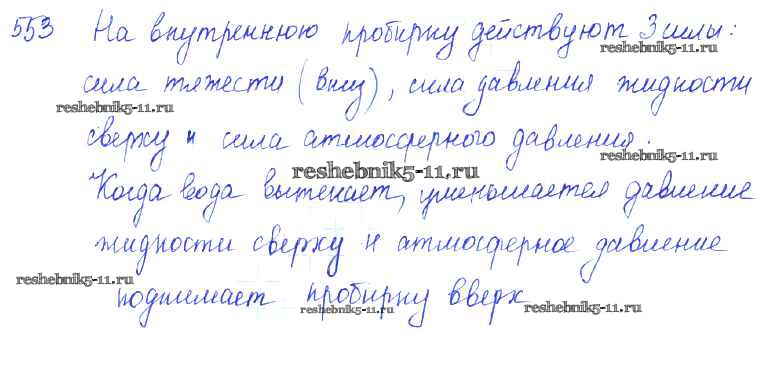 553 На внутреннюю пробирку действуют 3 силы:
reshebnik5-11.ru
сила тяжести (вниз), сила давления жидкости
reshebnik5-11.ru
сверху и сила атмосферного давления.
reshebnik5-11.ru
reshebnik5-11.ru
Когда вода вытекает, уменьшается давление
жидкости сверху и атмосферное давление
reshebnik5-11.ru
поднимает пробирку вверх
reshebnik5-11.ru
reshebnik5-11.ru